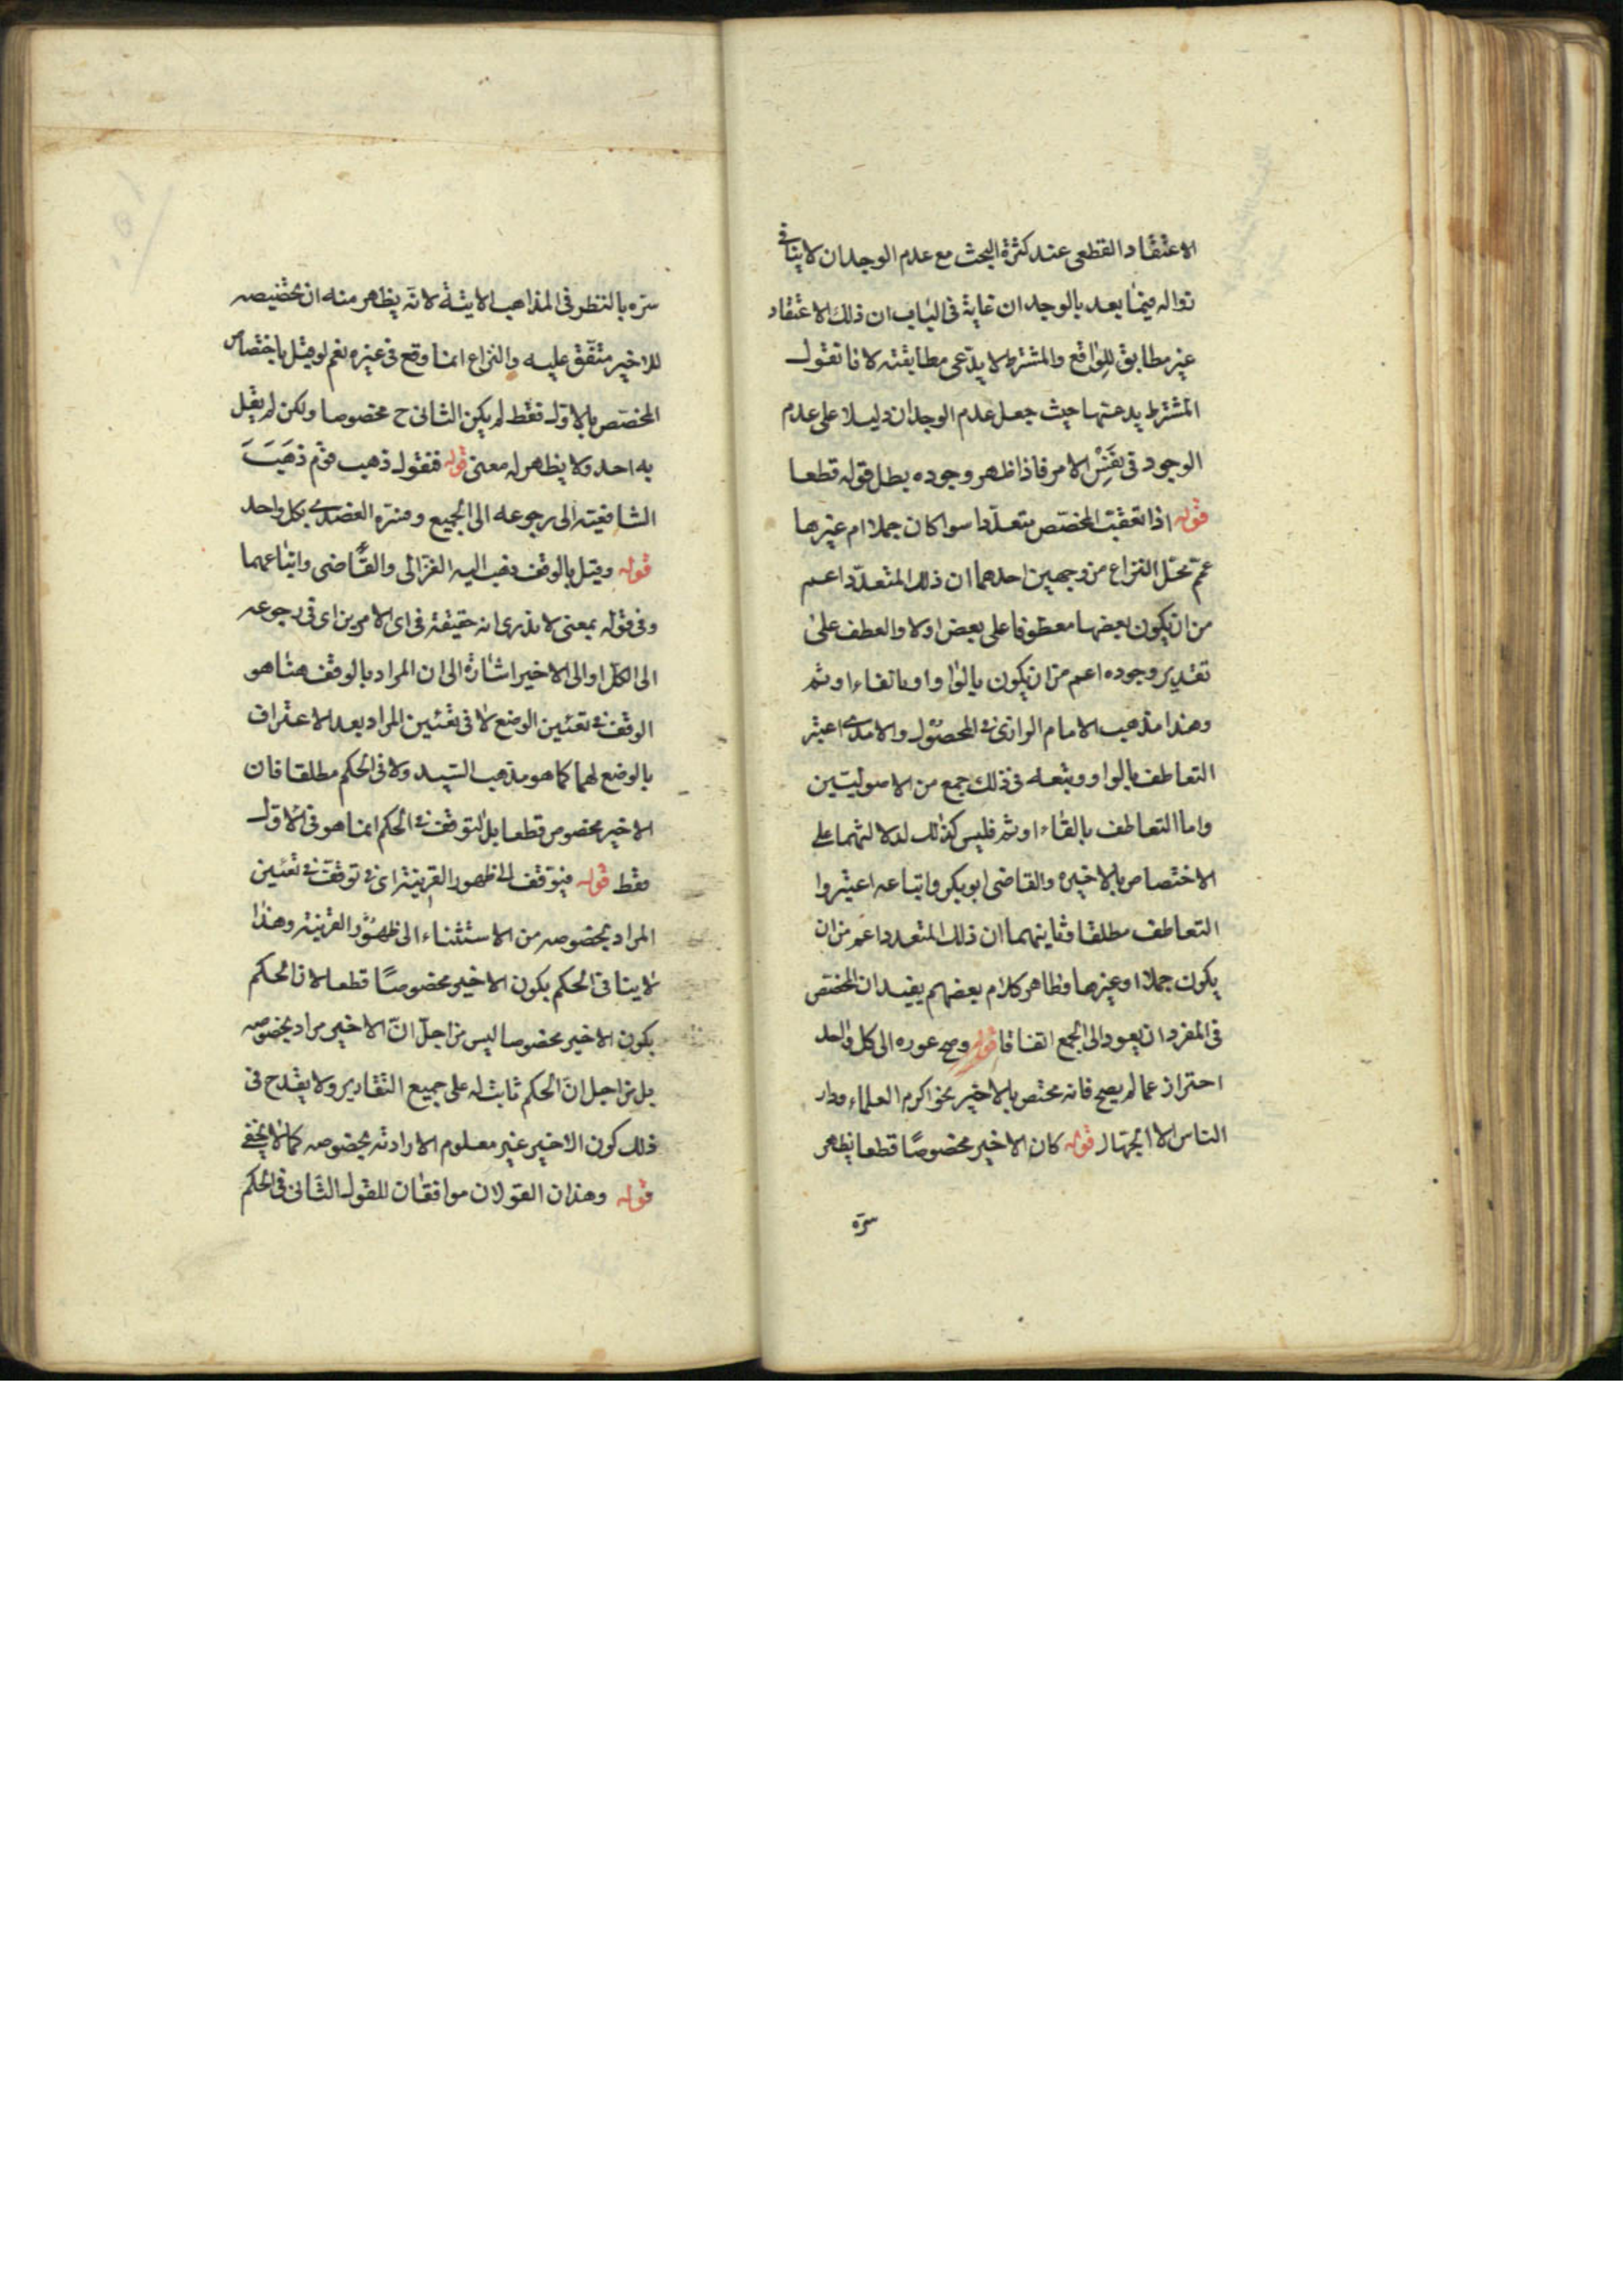 الاعتقاد القطعى عند كثرة البحث مع عدم الوجدان لا ينافى
زواله فيما بعد بالوجدان غاية فى الباب ان ذلك الاعتقاد
غير مطابق للواقع والمشترط لا يدعى مطابقته لانا نقول
المشترط يدعيها حيث جعل عدم الوجدان دليلا على عدم
الوجود فى نفس الامر فاذا ظهر وجوده بطل قوله قطعا
قوله اذا تعقب المخصص متعددا سوا كان جملا ام غيرها
عمم محل النزاع من وجهين احدهما ان ذلك المتعدد اعم
من ان يكون بعضها معطوفا على بعض اولا والعطف على
تقدير وجوده اعم من ان يكون بالواو او بالفاء او ثم
وهذا مذهب الامام الرازى فى المحصول والامدى اعتبر
التعاطف بالواو وتبعه فى ذلك جمع من الاصوليين
واما التعاطف بالفاء او ثم فليس كذلك لدلالتهما على
الاختصاص بالاخيره والقاضى ابو بكر واتباعه اعتبروا
التعاطف مطلقا وثانيهما ان ذلك المتعدد اعم من ان
يكون جملا او غيرها وظاهر كلام بعضهم يفيد ان المختص
فى المفرد ان يعود الى الجمع اتفاقا قوله وصح عوده الى كل واحد
احتراز عما لم يصح فانه مختص بالاخير نحو اكرم العلماء وزار
الناس الا الجهال قوله كان الاخير مخصوصا قطعا يظهر
سره
سره بالنظر فى المذاهب الاتية لانه يظهر منه ان تخصيصه
للاخير متفق عليه والنزاع انما وقع فى غيره نعم لو قيل باختصاص
المخصص بالاول فقط لم يكن الثانى ح مخصوصا ولكن لم يقل
به احد ولا يظهر له معنى قوله فنقول ذهب قوم ذهبت
الشافعية الى رجوعه الى الجميع وفسره العضدى بكل واحد
قوله وقيل بالوقف ذهب اليه الغزالى والقاضى واتباعهما
وفى قوله بمعنى لا ندرى انه حقيقة فى اى الامرين اى فى رجوعه
الى الكل او الى الاخير اشارة الى ان المراد بالوقف هنا هو
الوقف فى تعيين الوضع لا فى تعيين المراد بعد الاعتراف
بالوضع لهما كما هو مذهب السيد ولا فى الحكم مطلقا فان
الاخير مخصوص قطعا بل التوقف فى الحكم انما هو فى الاول
فقط قوله فيتوقف الى ظهور القرينة اى فى توقف فى تعيين
المراد بخصوصه من الاستثناء الى ظهور القرينة وهذا
لا ينافى الحكم بكون الاخير مخصوصا قطعا لان الحكم
بكون الاخير مخصوصا ليس من اجل ان الاخير مراد بخصوصه
بل من اجل ان الحكم ثابت له على جميع التقادير ولا يقدح فى
ذلك كون الاخير غير معلوم الارادته بخصوصه كما لا يخفى
قوله وهذان القولان موافقان للقول الثانى فى الحكم